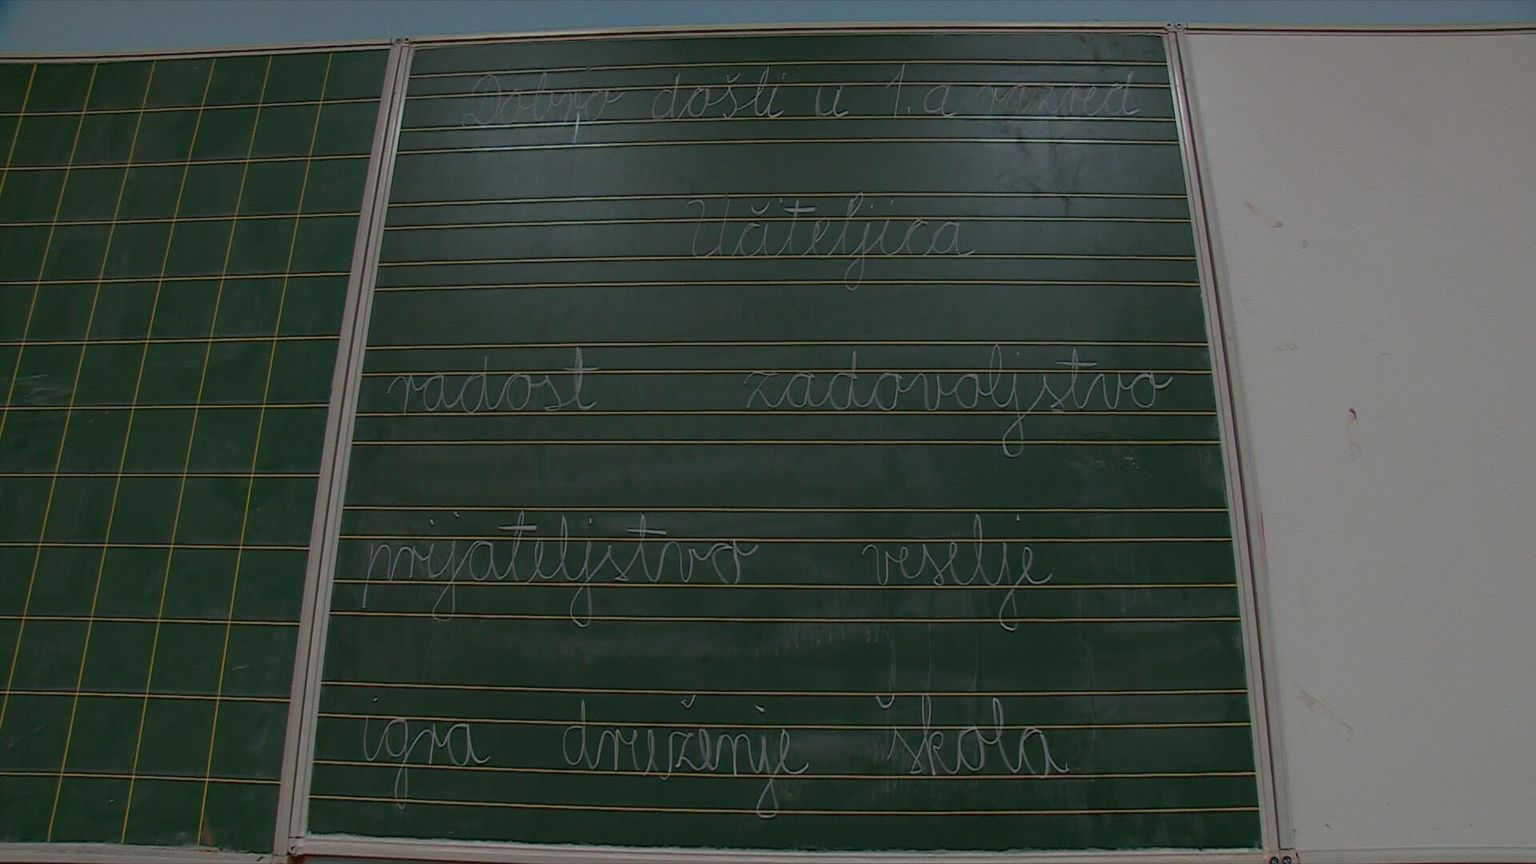 Dobro došli u 1.a razred
Učiteljica
radost zadovoljstvo
prijateljstvo veselje
igra druženje škola